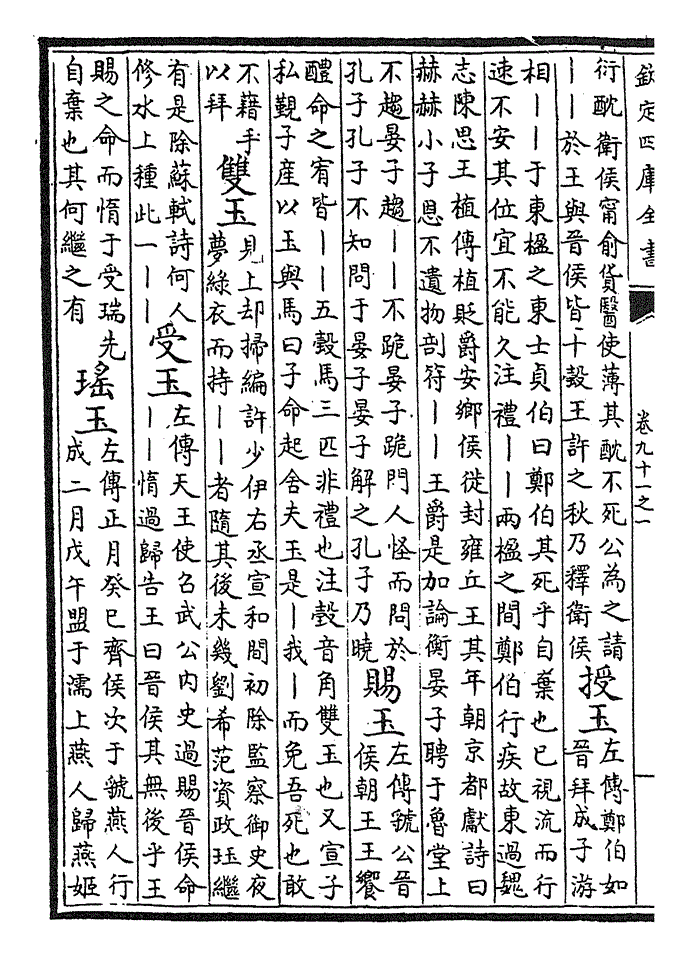 欽定四庫全書
卷九十一之一
衍酖衛侯甯俞貨醫使薄其酖不死公為之請
丨丨於王與晉侯皆十瑴王許之秋乃釋衛侯
授玉
左傳鄭伯如
晉拜成子游
相丨丨于東楹之東士貞伯曰鄭伯其死乎自棄也已視流而行
速不安其位宜不能久注禮丨丨兩楹之間鄭伯行疾故東過魏
志陳思王植傳植貶爵安鄉侯徙封雍丘王其年朝京都獻詩曰
赫赫小子恩不遺物剖符丨丨王爵是加論衡晏子聘于魯堂上
不趨晏子趨丨丨不跪晏子跪門人怪而問於
孔子孔子不知問于晏子晏子解之孔子乃曉
賜玉
左傳虢公晉
侯朝王王饗
醴命之宥皆丨丨五瑴馬三匹非禮也注瑴音角雙玉也又宣子
私覲子產以玉與馬曰子命起舍夫玉是丨我丨而免吾死也敢
不藉手
以拜
雙玉
見上却掃編許少伊右丞宣和間初除監察御史夜
夢綠衣而持丨丨者隨其後未幾劉希范資政珏繼
有是除蘇軾詩何人
修水上種此一丨丨
受玉
左傳天王使召武公內史過賜晉侯命
丨丨惰過歸告王曰晉侯其無後乎王
賜之命而惰于受瑞先
自棄也其何繼之有
瑤玉
左傳正月癸巳齊侯次于虢燕人行
成二月戊午盟于濡上燕人歸燕姬